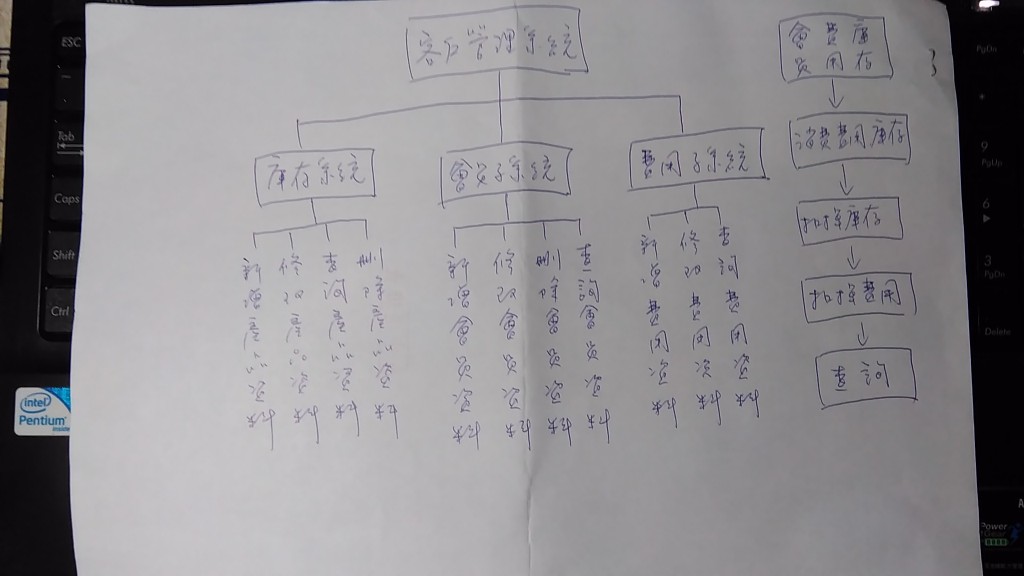 客戶管理系統
庫存系統
會員子系統
費用子系統
新增產品資料
修改產品資料
查詢產品資料
刪除產品資料
新增會員資料
修改會員資料
刪除會員資料
查詢會員資料
新增費用資料
修改費用資料
查詢費用資料
會費庫
員用存
消費費用庫存
扣掉庫存
扣掉費用
查詢
ESC
Tab
Caps
Shift
Ctrl
intel
Pentium
inside
PgDn
9
PgUp
6
3
PgDn
Delete
Power